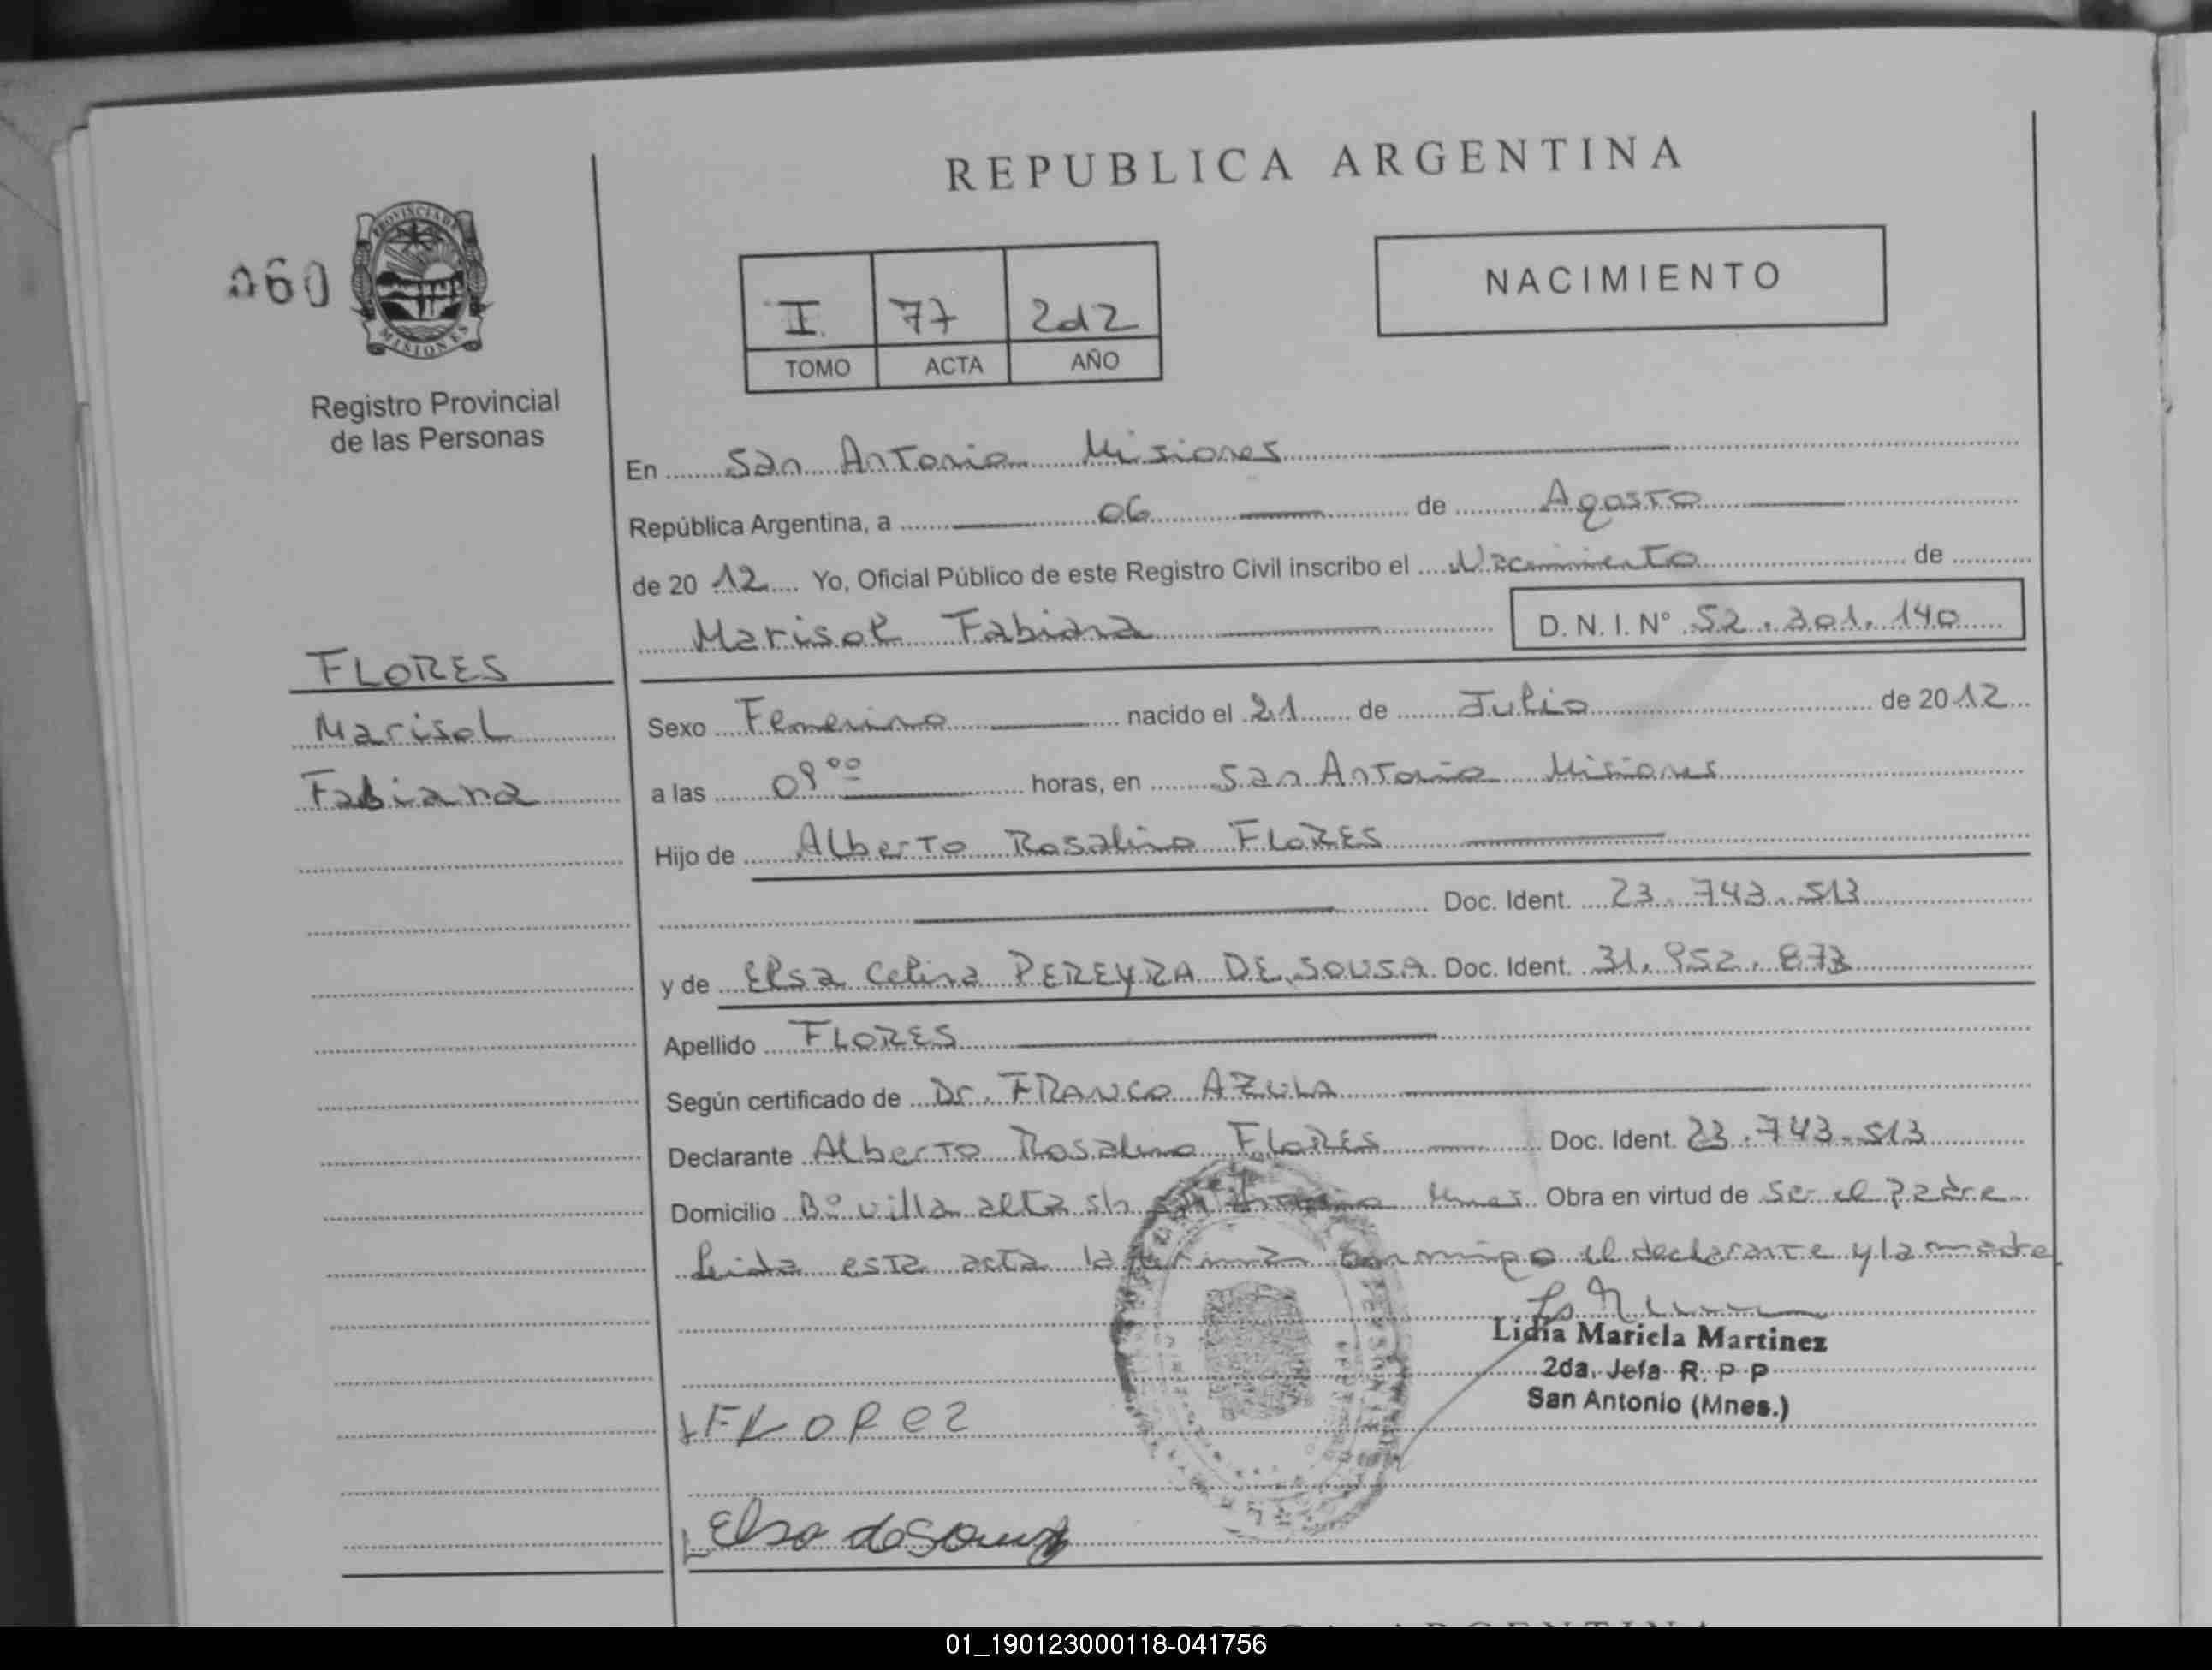 REPUBLICA ARGENTINA
060
PROVINCIA DE
MISIONES
Registro Provincial
de las Personas
I 77 2012
TOMO ACTA AÑO
NACIMIENTO
En San Antonio Misiones
República Argentina, a 06 de Agosto
de 20 12 Yo, Oficial Público de este Registro Civil inscribo el Nacimiento de
Marisol Fabiana D. N. I. N° 52.301.140
FLORES
Marisol
Fabiana
Sexo Femenino nacido el 21 de Julio de 20 12
a las 08 00 horas, en San Antonio Misiones
Hijo de Alberto Rosalino FLORES
Doc. Ident. 23.743.513
y de Elsa Celina PEREYRA DE SOUSA Doc. Ident. 31.952.873
Apellido FLORES
Según certificado de Dr. FRANCO AZULA
Declarante Alberto Rosalino FLORES Doc. Ident. 23.743.513
Domicilio B° villa alta s/n San Antonio Mnes. Obra en virtud de ser el padre
Leida esta acta la firman conmigo el declarante y la madre
Lidia Mariela Martinez
2da. Jefa R. P. P
San Antonio (Mnes.)
Elsa de Souza
01_190123000118-041756